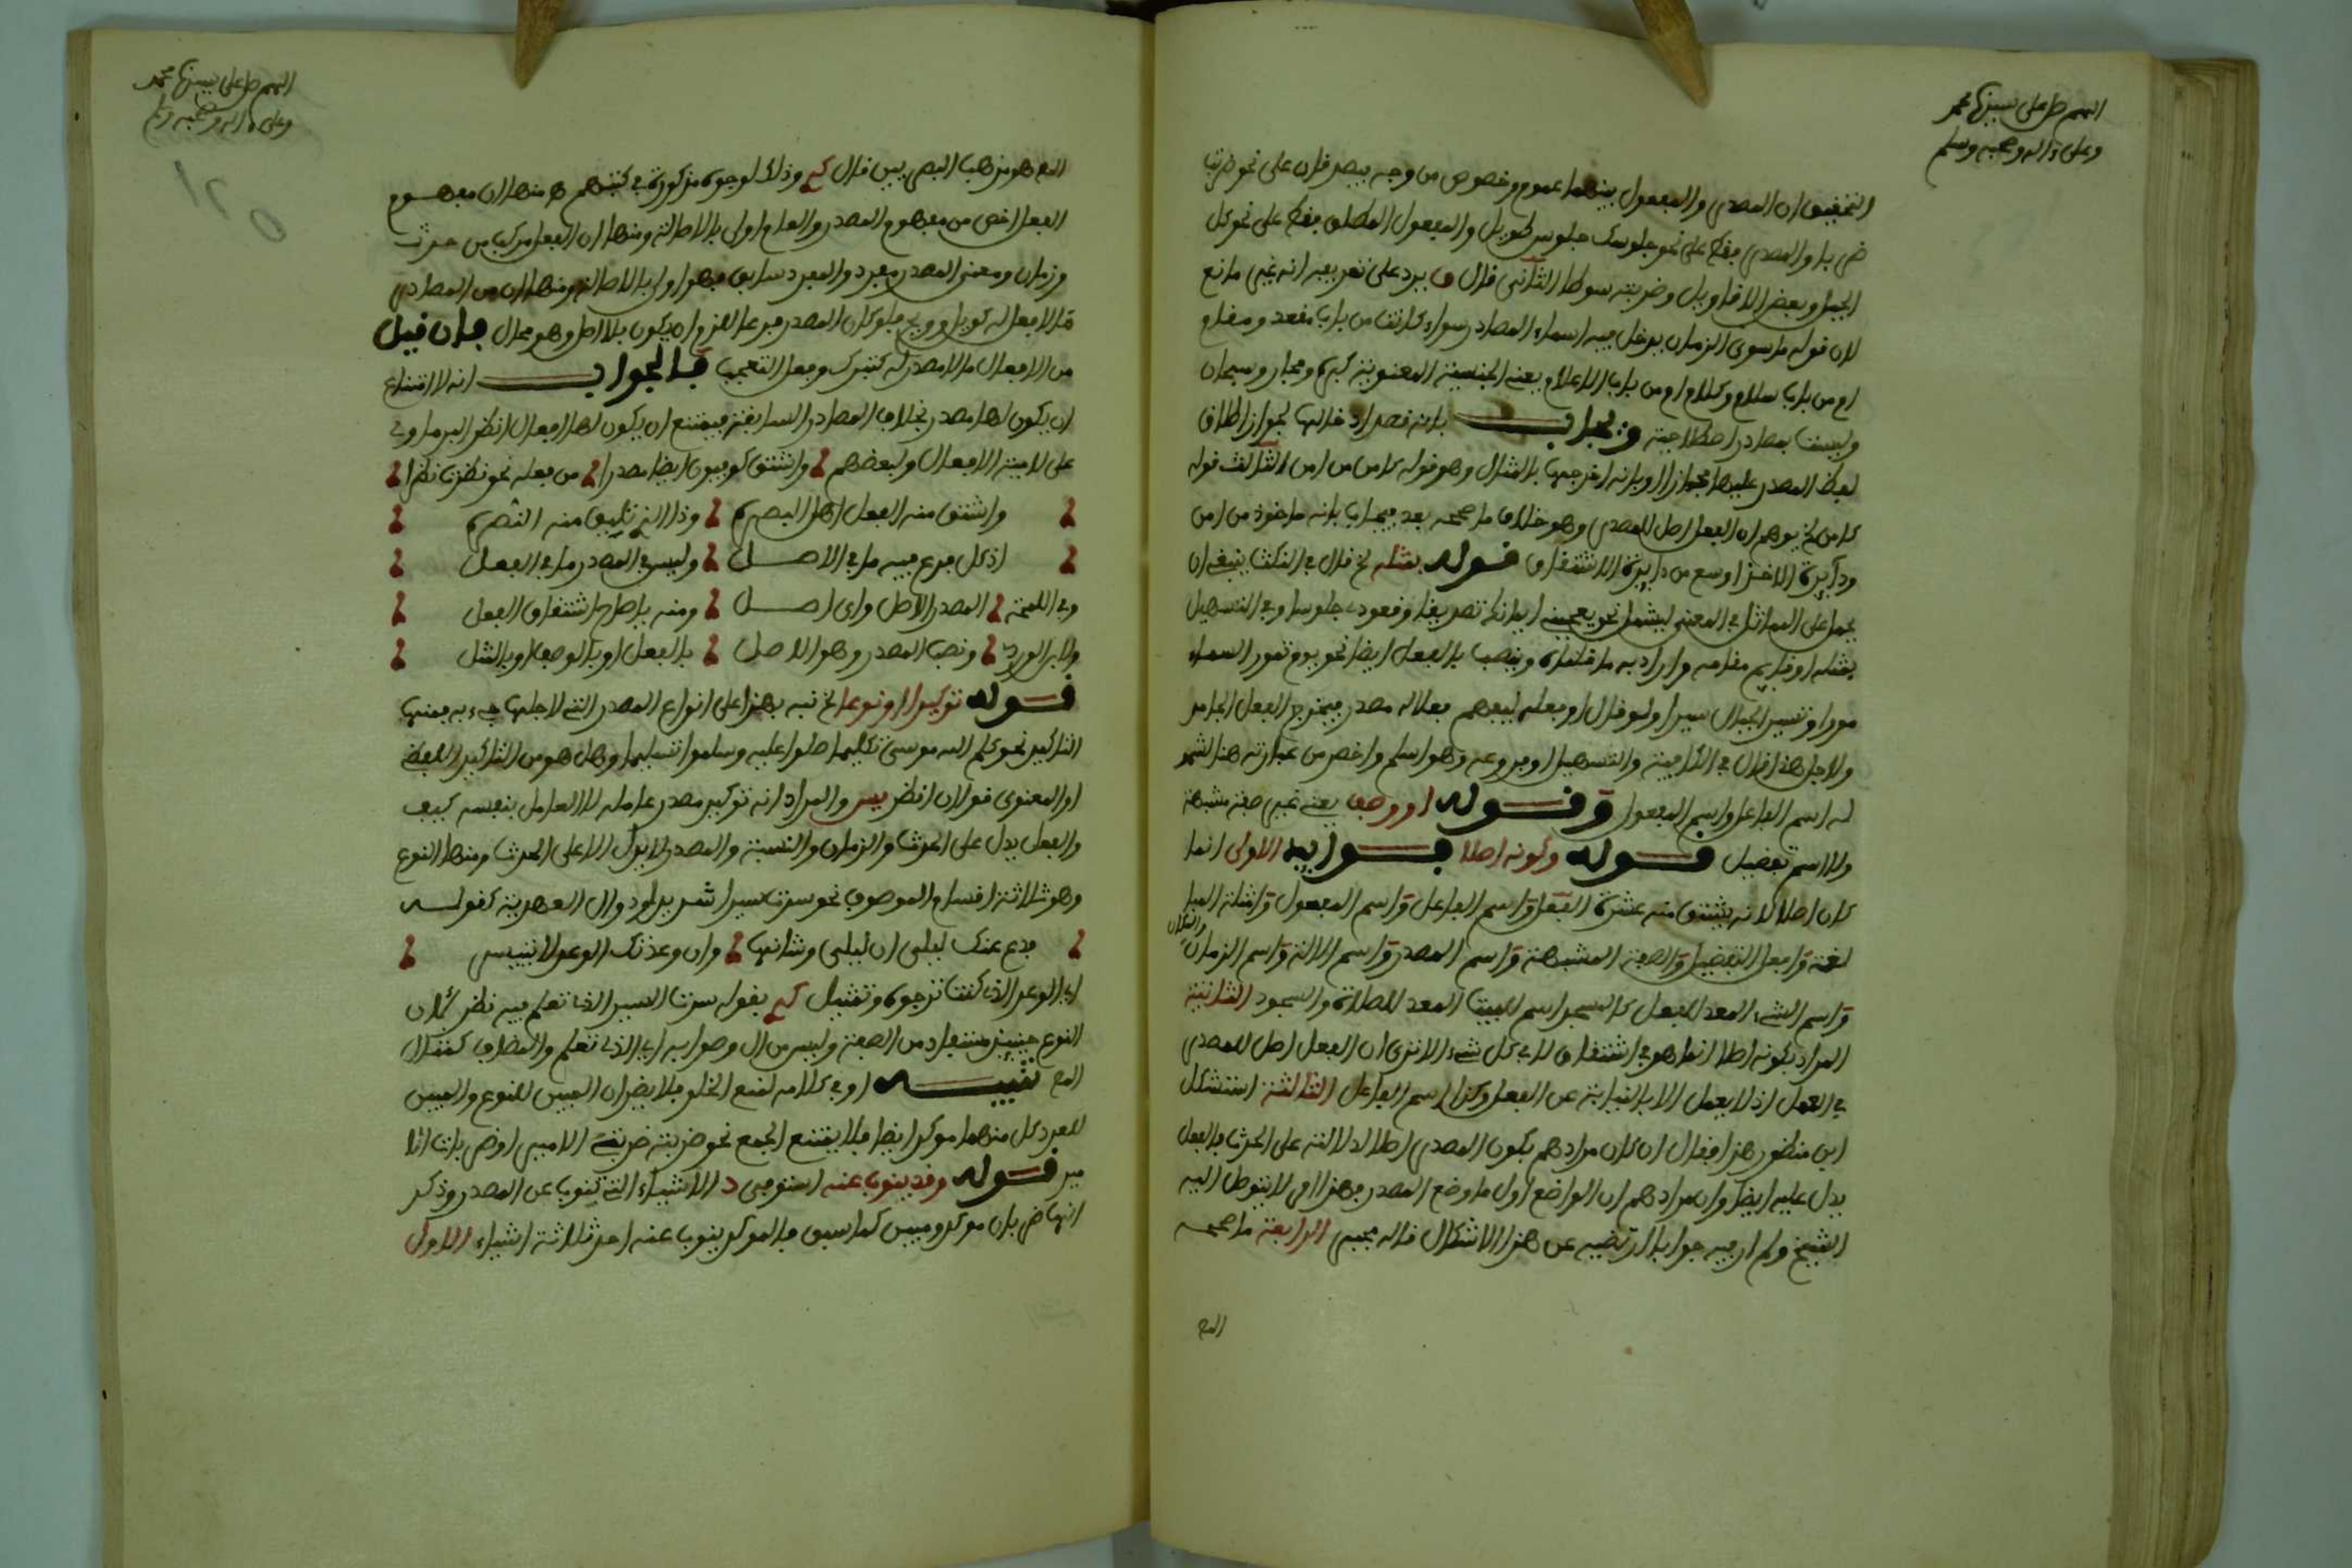 اللهم صل على سيدنا محمد
وعلى ءاله وصحبه وسلم
التحقيق ان المصدر والمفعول بينهما عموم وخصوص من وجه يصدقان على نحو ضربت
ضربا والمصدر فقط على نحو جلوسك جلوس طويل والمفعول المطلق فقط على نحو كل
الجمل وبعض الاقاويل وضربته سوطا الثاني قال يرد على تعريفه انه غير مانع
لان قوله ما سوى الزمان يدخل فيه اسماء المصادر سواء كانت من باب مقعد ومقام
او من باب سلام وكلام او من باب الاعلام يعني الجنسية المعنوية كبرة وفجار وسبحان
وليست بمصادر اصطلاحية ويجاب بانه قصد ادخالها لجواز اطلاق
لفظ المصدر عليها مجازا او بانه اخرجها بالمثال وهو قوله كامن من امن الثالث قوله
كامن يوهم ان الفعل اصل للمصدر وهو خلاف ما صححه بعد فيجاب بانه ماخوذ من امن
ودايرة الاخذ اوسع من دايرة الاشتقاق قوله بمثله قال في النكت ينبغي ان
يحمل على المماثل في المعنى ليشمل نحو يعجبني ايمانك تصديقا وقعودك جلوسا وفي التسهيل
بمثله او قايم مقامه وينصب بالفعل ايضا نحو يوم تمور السماء
مورا وتسير الجبال سيرا ولو قال او بعله ليفهم فعلا له مصدر فيخرج الفعل الجامد
ولاجل هذا قال في الكافية والتسهيل او فروعه وهو اسلم واخصر من عبارته هنا لشموله
له اسم الفاعل واسم المفعول وقوله او وصف يعني غير صفة مشبهة
ولا اسم تفضيل قوله وكونه اصلا فوائد الاولى انما
كان اصلا لانه يشتق منه عشرة الفعل واسم الفاعل واسم المفعول وامثلة المبا
لغة وافعل التفضيل والصفة المشبهة واسم المصدر واسم الالة واسم الزمان
والمكان
واسم الشيء المعد للفعل كالمسجد اسم للبيت المعد للصلاة والسجود الثانية
المراد بكونه اصلا انما هو في اشتقاق لا في كل شيء الا ترى ان الفعل اصل للمصدر
في العمل اذ لا يعمل الا بالنيابة عن الفعل وكذا اسم الفاعل الثالثة استشكل
ابن منظور هذا فقال ان كان مرادهم بكون المصدر اصلا لدلالته على الحدث فالفعل
يدل عليه ايضا وان مرادهم ان الواضع اول ما وضع المصدر فهذا امر لا يتوصل اليه
الشيخ ولم ار فيه جوابا ارتضيه عن هذا الاشكال قاله يحيى الرابعة ما صححه
الم
اللهم صل على سيدنا محمد
وعلى ءاله وصحبه وسلم
الم هو مذهب البصريين قال وذلك لوجوه مذكورة في كتبهم منها ان مفهوم
الفعل اخص من مفهوم المصدر والعام اولى بالاصالة ومنها ان الفعل مركب من حدث
وزمان ومعنى المصدر مفرد والمفرد سابق فهو اولى بالاصالة ومنها ان من المصادر
ما لا فعل له كويل وويح فلو كان المصدر فرعا لزم ان يكون بلا اصل وهو محال فان قيل
من الافعال ما لا مصدر له كتبرك وفعل التعجب فالجواب انه لا امتناع
ان يكون لها مصدر بخلاف المصادر السابقة فيمتنع ان يكون لها افعال انظر
على لامية الافعال ولبعضهم واشتق كوفيون ايضا مصدرا من فعله نحو نظرت نظرا
واشتق منه الفعل اهل البصرة وذا الذي تليق منه النصرة
اذ كل فرع فيه ما في الاصل وليس في المصدر ما في الفعل
وفي الملحة المصدر الاصل واي اصل ومنه يا صاح اشتقاق الفعل
ولابن الوردي ونصب المصدر وهو الاصل بالفعل او بالوصف او بالمثل
قوله توكيدا او نوعا نبه بهذا على انواع المصدر التي لاجلها جيء به فمنها
التاكيد نحو كلم الله موسى تكليما صلوا عليه وسلموا تسليما وهل هو من التاكيد اللفظي
او المعنوي قولان انظر يس والمراد انه توكيد مصدر عامله لا العامل بنفسه كيف
والفعل يدل على الحدث والزمان والنسبة والمصدر لا يدل الا على الحدث ومنها النوع
وهو ثلاثة اقسام الموصوف نحو سرت سيرا شديدا وذو ال العهدية كقوله
فدع عنك ليلى ان ليلى وشانها وان وعدتك الوعد لا تتيسر
اي الوعد الذي كنت ترجوه وتمثيل بقوله سرت السير الذي تعلم فيه نظر لان
النوع حينئذ مستفاد من الصفة وليس من ال وصوابه اي الذي تعلم والمضاف كمثال
الم تنبيه او في كلامه لمنع الخلو فلا يضر ان المبين للنوع والمبين
للعدد كل منهما موكد ايضا فلا يمتنع الجمع نحو ضربته ضربتي الامير او ضربات الا
مير قوله وقد ينوب عنه استوفى الاشياء التي تنوب عن المصدر وذكر
انها ضربان موكد ومبين كما سبق فالموكد ينوب عنه احد ثلاثة اشياء الاول